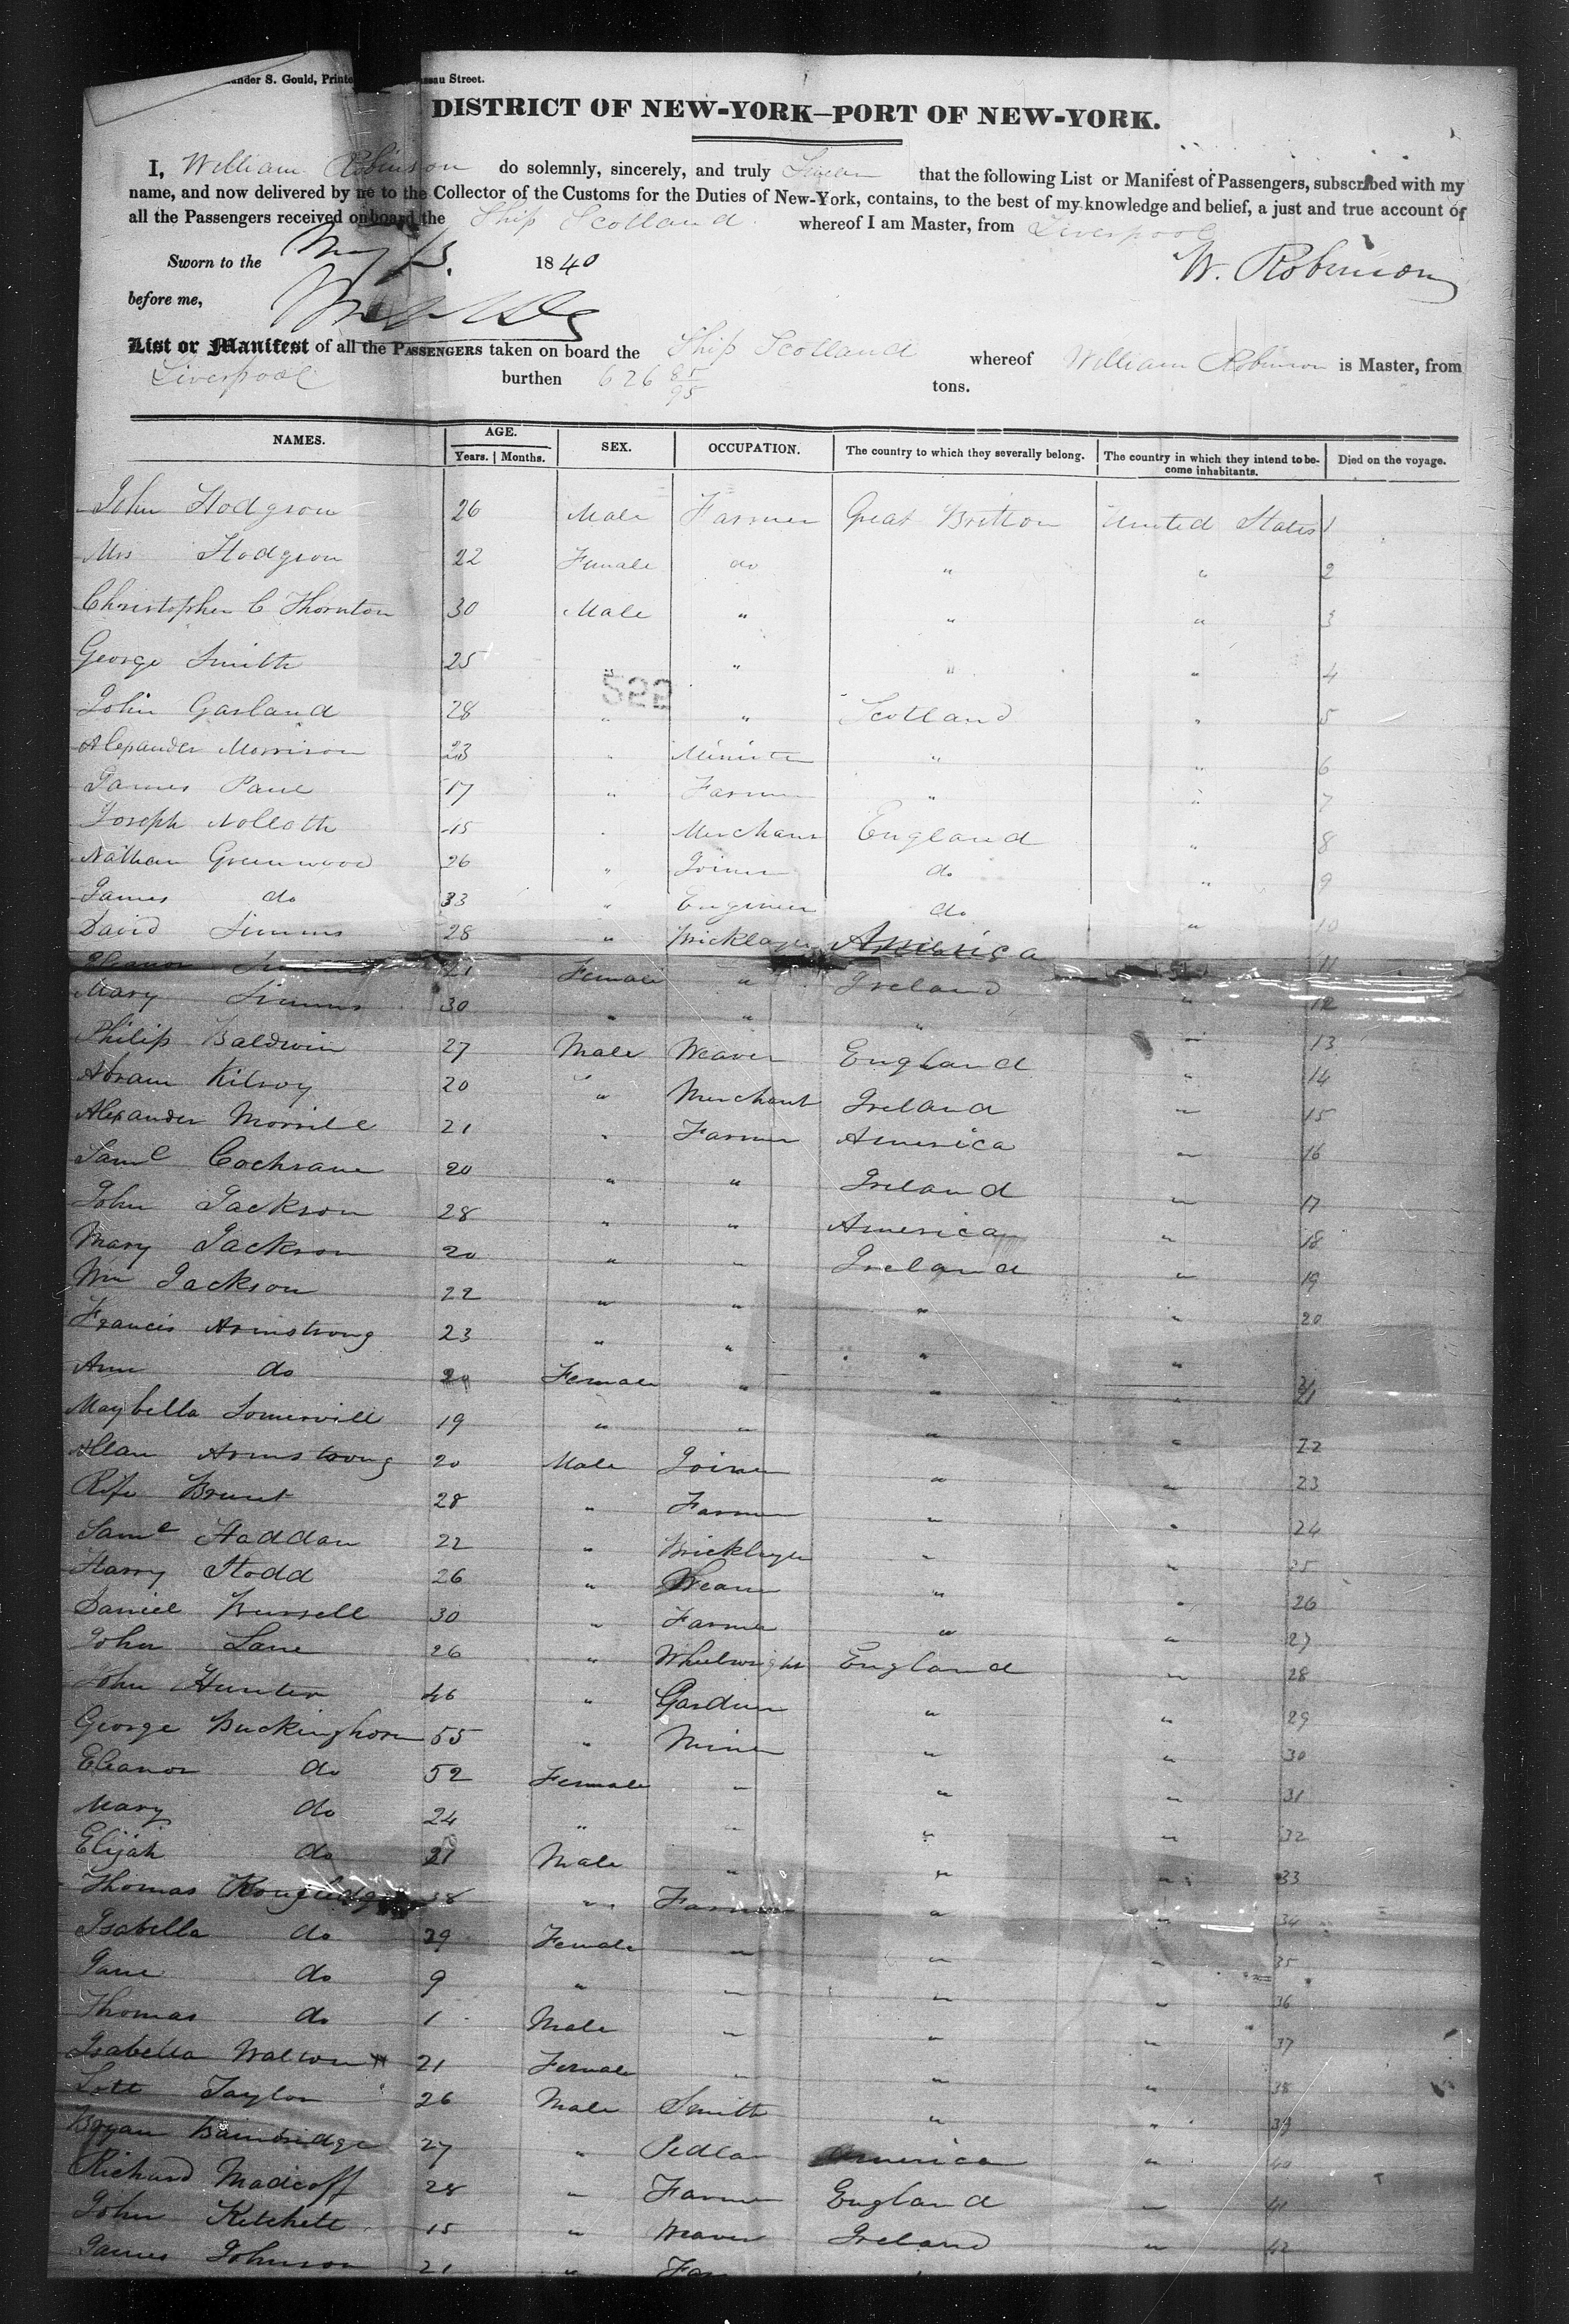 ander S. Gould, Printe ssau Street.
DISTRICT OF NEW-YORK—PORT OF NEW-YORK.
I, William Robinson do solemnly, sincerely, and truly Swear that the following List or Manifest of Passengers, subscribed with my
name, and now delivered by me to the Collector of the Customs for the Duties of New-York, contains, to the best of my knowledge and belief, a just and true account of
all the Passengers received on board the Ship Scotland whereof I am Master, from Liverpool
Sworn to the May 13. 1840 W. Robinson
before me,
List or Manifest of all the PASSENGERS taken on board the Ship Scotland whereof William Robinson is Master, from
Liverpool burthen 626 85/95 tons.
NAMES. AGE. SEX. OCCUPATION. The country to which they severally belong. The country in which they intend to be- Died on the voyage.
Years. Months. come inhabitants.
John Hodgson 26 Male Farmer Great Britton United States 1
Mrs Hodgson 22 Female do " " 2
Christopher C Thornton 30 Male " " " 3
George Smith 25 " " " " 4
522
John Garland 28 " " Scotland " 5
Alexander Morrison 23 " Minister " " 6
James Paul 17 " Farmer " " 7
Joseph Nolloth 45 " Merchant England " 8
Nathan Greenwood 26 " Joiner do " 9
James do 33 " Engineer do " 10
David Simms 28 " Bricklayer America " 11
Eleanor 21 Female " Ireland " 12
Mary Simms 30 " " " " 13
Philip Baldwin 27 Male Weaver England " 14
Abram Kilroy 20 " Merchant Ireland " 15
Alexander Morrill 21 " Farmer America " 16
Saml Cochrane 20 " " Ireland " 17
John Jackson 28 " " America " 18
Mary Jackson 20 " " Ireland " 19
Wm Jackson 22 " " " " 20
Francis Armstrong 23 " " " "
Ann do 20 Female " " " 21
Maybella Somervill 19 " " " " 22
Allan Armstrong 20 Male Joiner " " 23
Brunt 28 " Farmer " " 24
Saml Haddan 22 " Bricklayer " " 25
Harry Stodd 26 " Weaver " " 26
Daniel 30 " Farmer " " 27
John Lane 26 " Wheelwright England " 28
John Hunter 46 " Gardner " " 29
George Buckinghorn 55 " Miner " " 30
Eleanor do 52 Female " " " 31
Mary do 24 " " " " 32
Elijah do 21 Male " " " 33
Thomas 38 " Farmer " " 34
Isabella do 29 Female " " " 35
Jane do 9 " " " " 36
Thomas do 1 Male " " " 37
Isabella Walton 21 Female " " " 38
Lott Taylor 26 Male Smith " " 39
Bryan Bainbridge 27 " Pedlar America " 40
Richard Madcoff 28 " Farmer England " 41
John Kitchell 15 " Weaver Ireland " 42
James Johnson 21 "